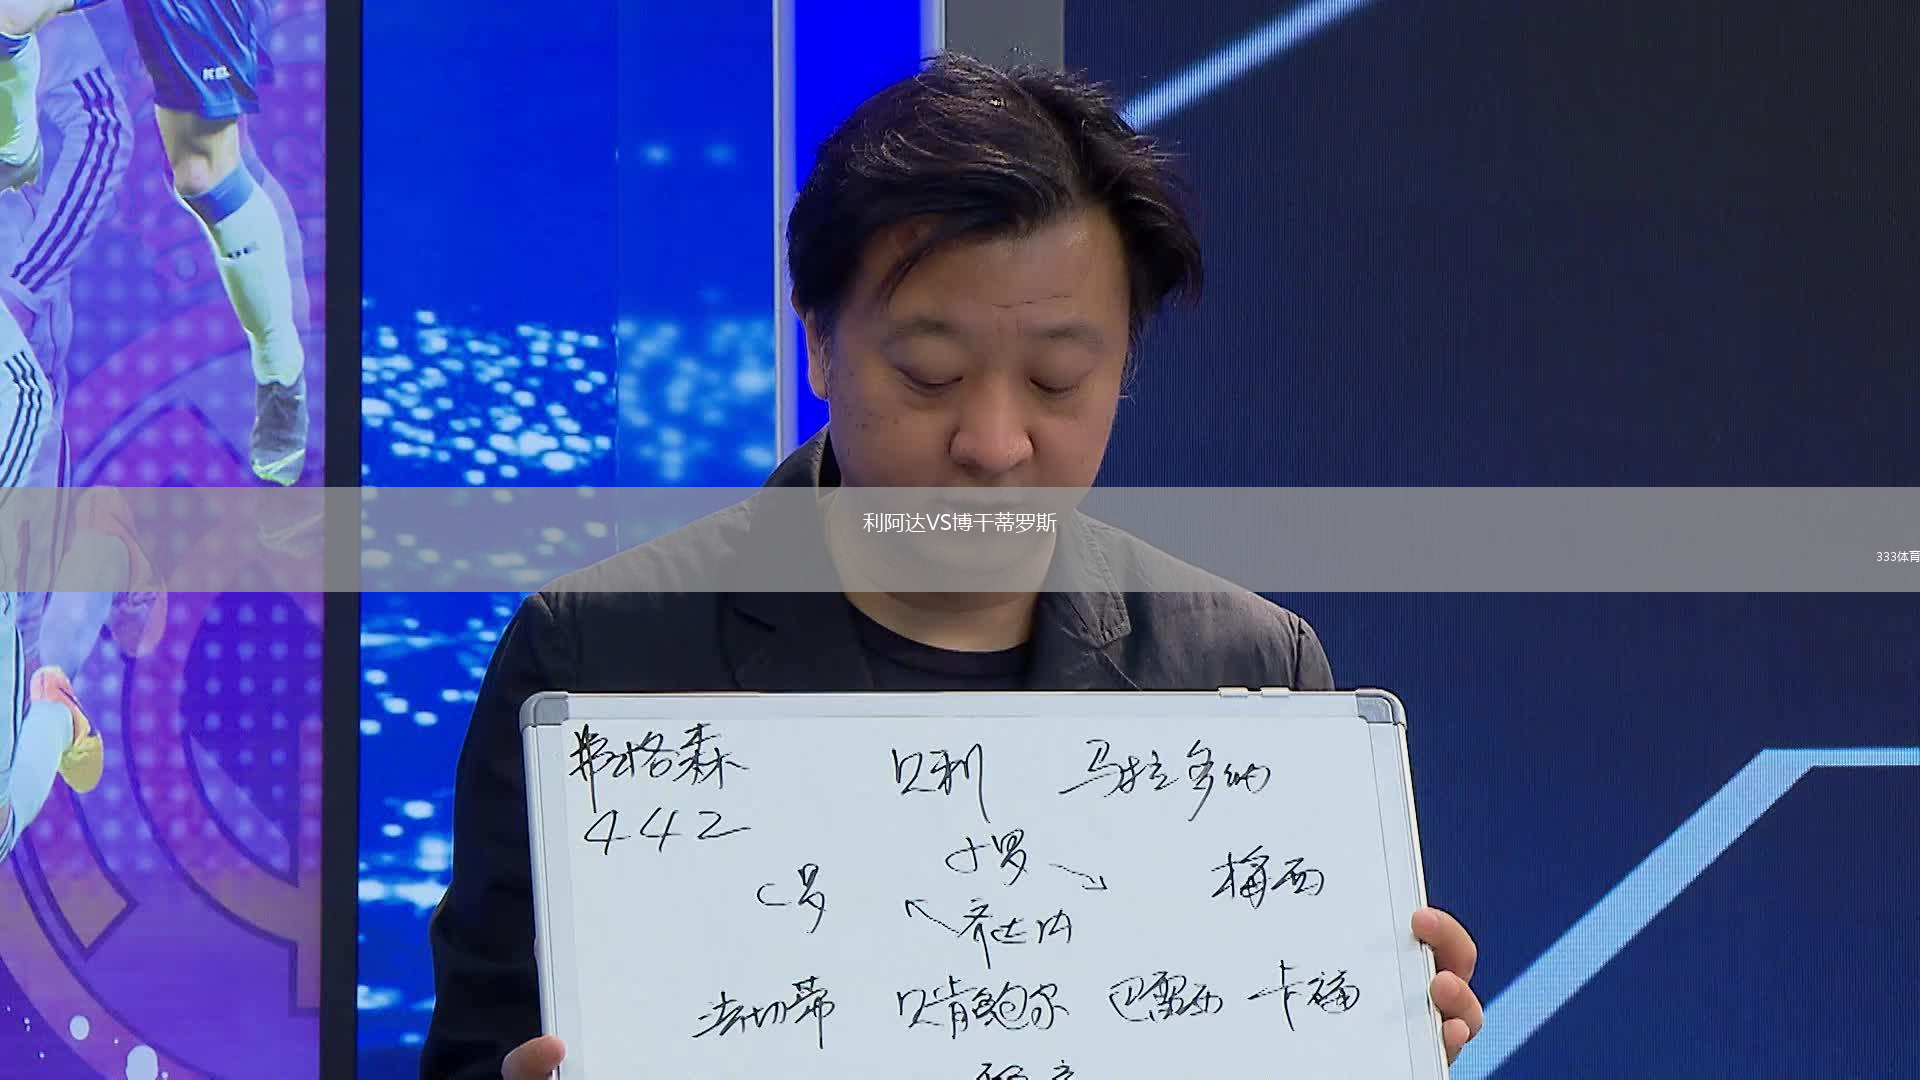 利阿达VS博干蒂罗斯
333体育
弗格森 贝利 马拉多纳
442
小罗
C罗 梅西
齐达内
法切蒂 贝肯鲍尔 巴雷西 卡福